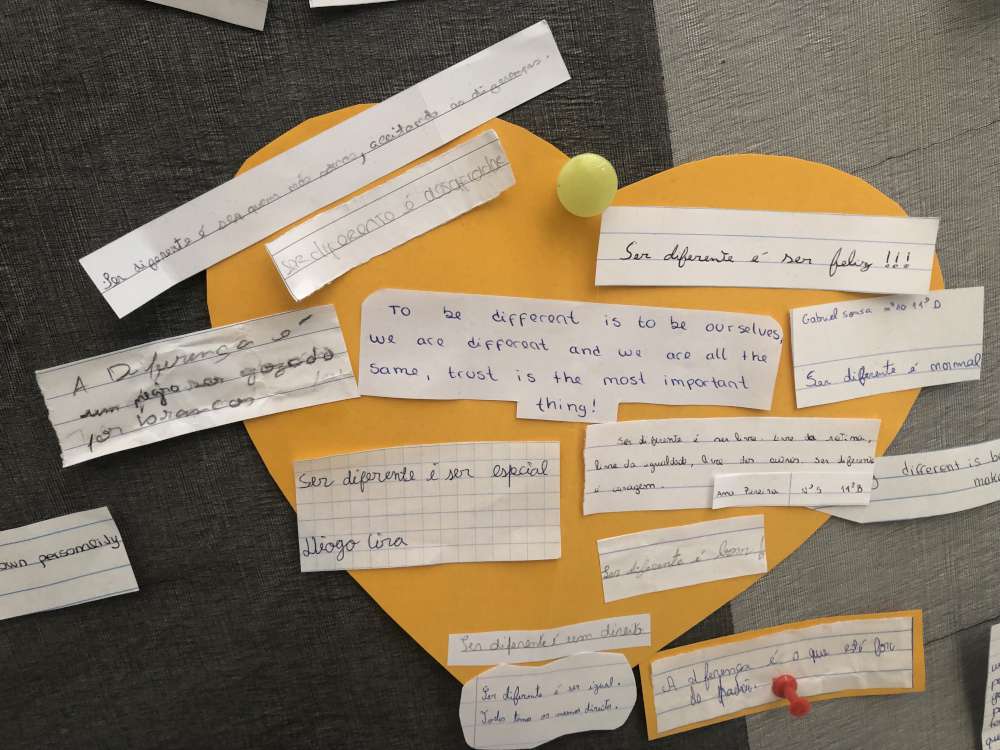 Ser diferente é ser quem nós somos, aceitando as diferenças.
Ser diferente é desafiante
Ser diferente é ser feliz !!!
A Diferença é
um negro ser gozado
por brancos
To be different is to be ourselves,
we are different and we are all the
same, trust is the most important
thing!
Gabriel Sousa nº10 11ºD
Ser diferente é normal
Ser diferente é ser livre. Livre da rotina,
livre da igualdade, livre dos outros. Ser diferente
é coragem.
Ana Pereira Nº5 11ºB
different is be
make
Ser diferente é ser especial
Diogo Lira
own personality
Ser diferente é bom
Ser diferente é um direito
Ser diferente é ser igual.
Todos temos os mesmos direitos.
A diferença é o que está fora
do padrão.